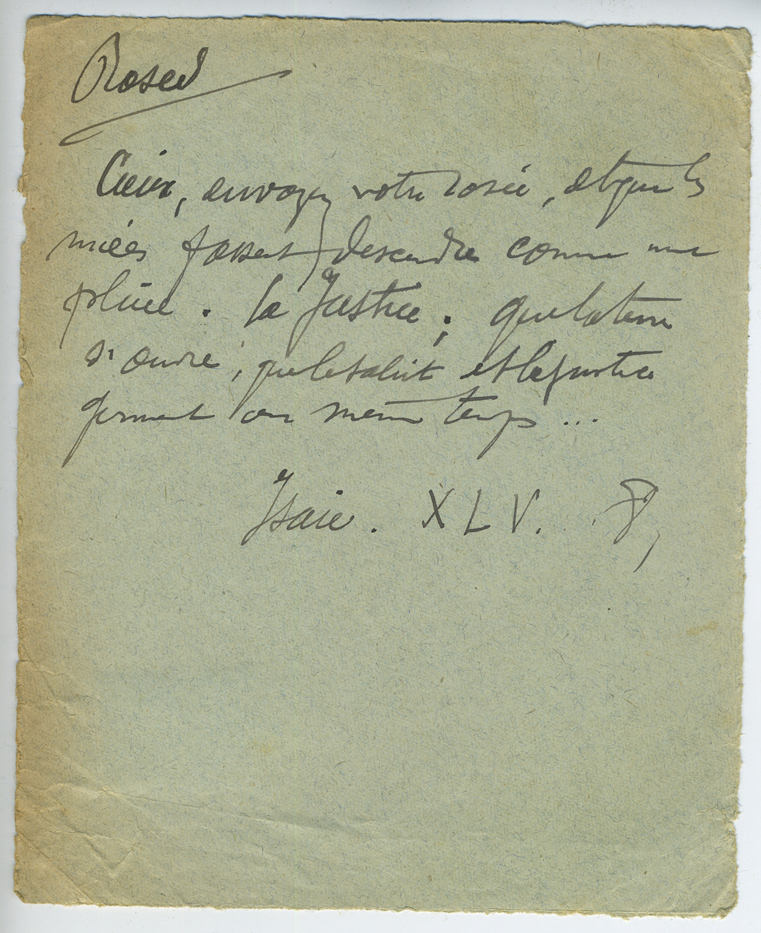 Rosée
Cieux, envoyez votre rosée, et que les
nuées fassent descendre comme une
pluie. la Justice ; que la terre
s'ouvre ; que le salut et la justice
germent en même temps ...
Isaie. XLV. 8,